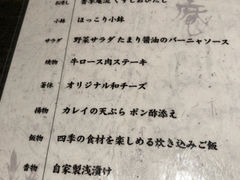 お浸し
小鉢 ほっこり小鉢
サラダ 野菜サラダ たまり醤油のバーニャソース
焼物 牛ロース肉ステーキ
箸休 オリジナル和チーズ
揚物 カレイの天ぷら ポン酢添え
飯物 四季の食材を楽しめる炊き込みご飯
香物 自家製浅漬け